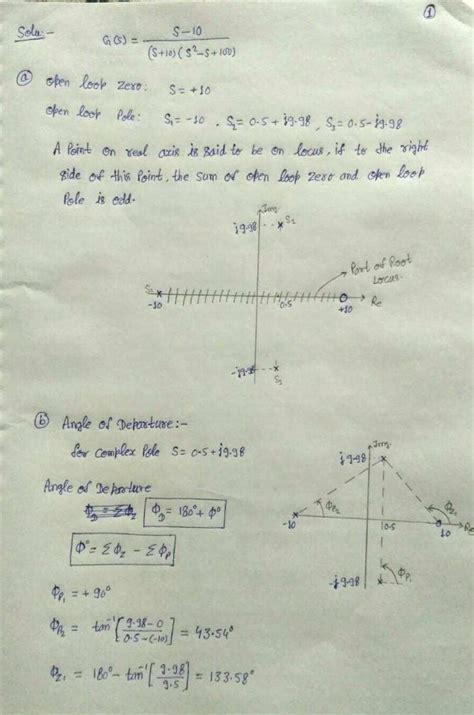 ①
Solu:-
G(s) = S-10 / (S+10)(S²-S+100)
ⓐ open loop Zero: S = +10
open loop Pole: S₁ = -10 . S₂ = 0.5 + j9.98 , S₃ = 0.5 - j9.98
A Point on real axis is said to be on locus, if to the right
side of this Point, the sum of open loop zero and open loop
Pole is odd.
Img.
j9.98 S₂
Part of Root
Locus.
S₁
-10 0.5 +10 Re
-j9.98
S₃
ⓑ Angle of Departure:-
for complex Pole S = 0.5 + j9.98
Angle of Departure
Φ_D = 180° + Φ°
Φ° = ΣΦ_Z - ΣΦ_P
Img.
j9.98
Φ_P₂
-10 0.5 10 Re
-j9.98 Φ_P₁
Φ_P₁ = +90°
Φ_P₂ = tan⁻¹[9.98-0 / 0.5-(-10)] = 43.54°
Φ_Z₁ = 180° - tan⁻¹[9.98 / 9.5] = 133.58°